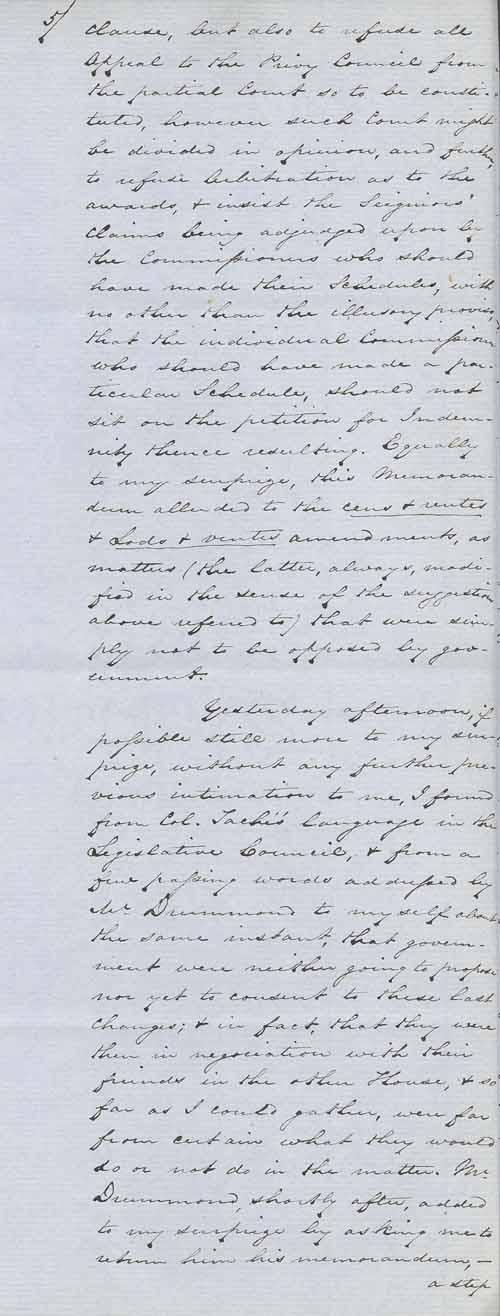 5/
clause, but also to refuse all
Appeal to the Privy Council from
the partial Court so to be consti-
tuted, however such Court might
be divided in opinion, and further,
to refuse Arbitration as to the
awards, & insist the Seigniors'
claims being adjudged upon by
the Commissioners who should
have made their Schedules, with
no other than the illusory proviso,
that the individual Commissioner
who should have made a par-
ticular Schedule, should not
sit on the petition for Indem-
nity thence resulting. Equally
to my surprize, this Memoran-
dum alluded to the cens & rentes
& Lods & ventes amendments, as
matters (the latter, always, modi-
fied in the sense of the suggestion
above referred to) that were sim-
ply not to be opposed by gov-
ernment.
Yesterday afternoon, if
possible still more to my sur-
prize, without any further pre-
vious intimation to me, I found
from Col. Taché's language in the
Legislative Council, & from a
few passing words addressed by
Mr Drummond to myself about
the same instant, that govern-
ment were neither going to propose
nor yet to consent to these last
changes; & in fact, that they were
then in negociation with their
friends in the other House, & so
far as I could gather, were far
from certain what they would
do or not do in the matter. Mr
Drummond, shortly after, added
to my surprize by asking me to
return him his memorandum,—
a step